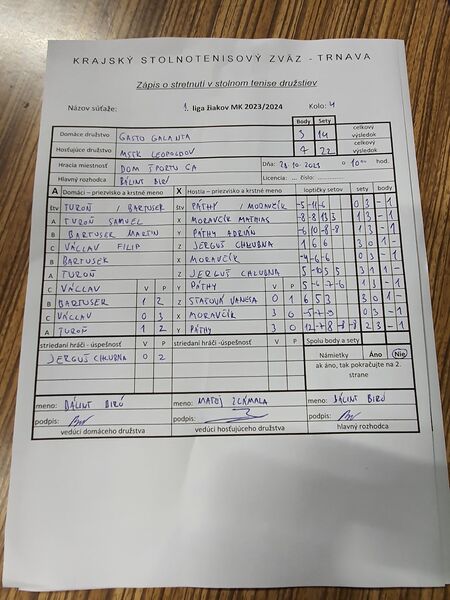 KRAJSKÝ STOLNOTENISOVÝ ZVÄZ - TRNAVA
Zápis o stretnutí v stolnom tenise družstiev
Názov súťaže: 1. liga žiakov MK 2023/2024 Kolo: 4
Body Sety
Domáce družstvo GASTO GALANTA 3 14 celkový výsledok
Hosťujúce družstvo MSTK LEOPOLDOV 7 22 celkový výsledok
Hracia miestnosť DOM ŠPORTU GA Dňa: 28.10.2023 o 10 hod.
Hlavný rozhodca BÁLINT BIRÓ Licencia: ... číslo:
A Domáci – priezvisko a krstné meno X Hostia – priezvisko a krstné meno loptičky setov sety body
štv TUROŇ / BARTUSER štv PÁTHY / MORAVČÍK -5 -11 -6 0 3 - 1
A TUROŇ SAMUEL X MORAVČÍK MATHIAS -8 -8 13 3 1 3 - 1
B BARTUSER MARTIN Y PÁTHY ADRIÁN -6 10 -8 -8 1 3 - 1
C VÁCLAV FILIP Z JERGUŠ CHLUBNA 1 6 6 3 0 1 -
B BARTUSER X MORAVČÍK -4 -6 -6 0 3 - 1
A TUROŇ Z JERGUŠ CHLUBNA 5 -10 5 5 3 1 1 -
C VÁCLAV V P Y PÁTHY V P 5 -6 -7 -6 1 3 - 1
B BARTUSER 1 2 Z STAŤOVÁ VANESA 0 1 6 5 3 3 0 1 -
C VÁCLAV 0 3 X MORAVČÍK 3 0 -5 -7 -9 0 3 - 1
A TUROŇ 1 2 Y PÁTHY 3 0 12 -7 8 -8 -8 2 3 - 1
striedaní hráči - úspešnosť V P striedaní hráči - úspešnosť V P Spolu body a sety
JERGUŠ CHLUBNA 0 2 Námietky Áno Nie
ak áno, tak pokračujte na 2. strane
meno: BÁLINT BIRÓ meno: MATOJ ZLÁMALA meno: BÁLINT BIRÓ
podpis: podpis: podpis:
vedúci domáceho družstva vedúci hosťujúceho družstva hlavný rozhodca